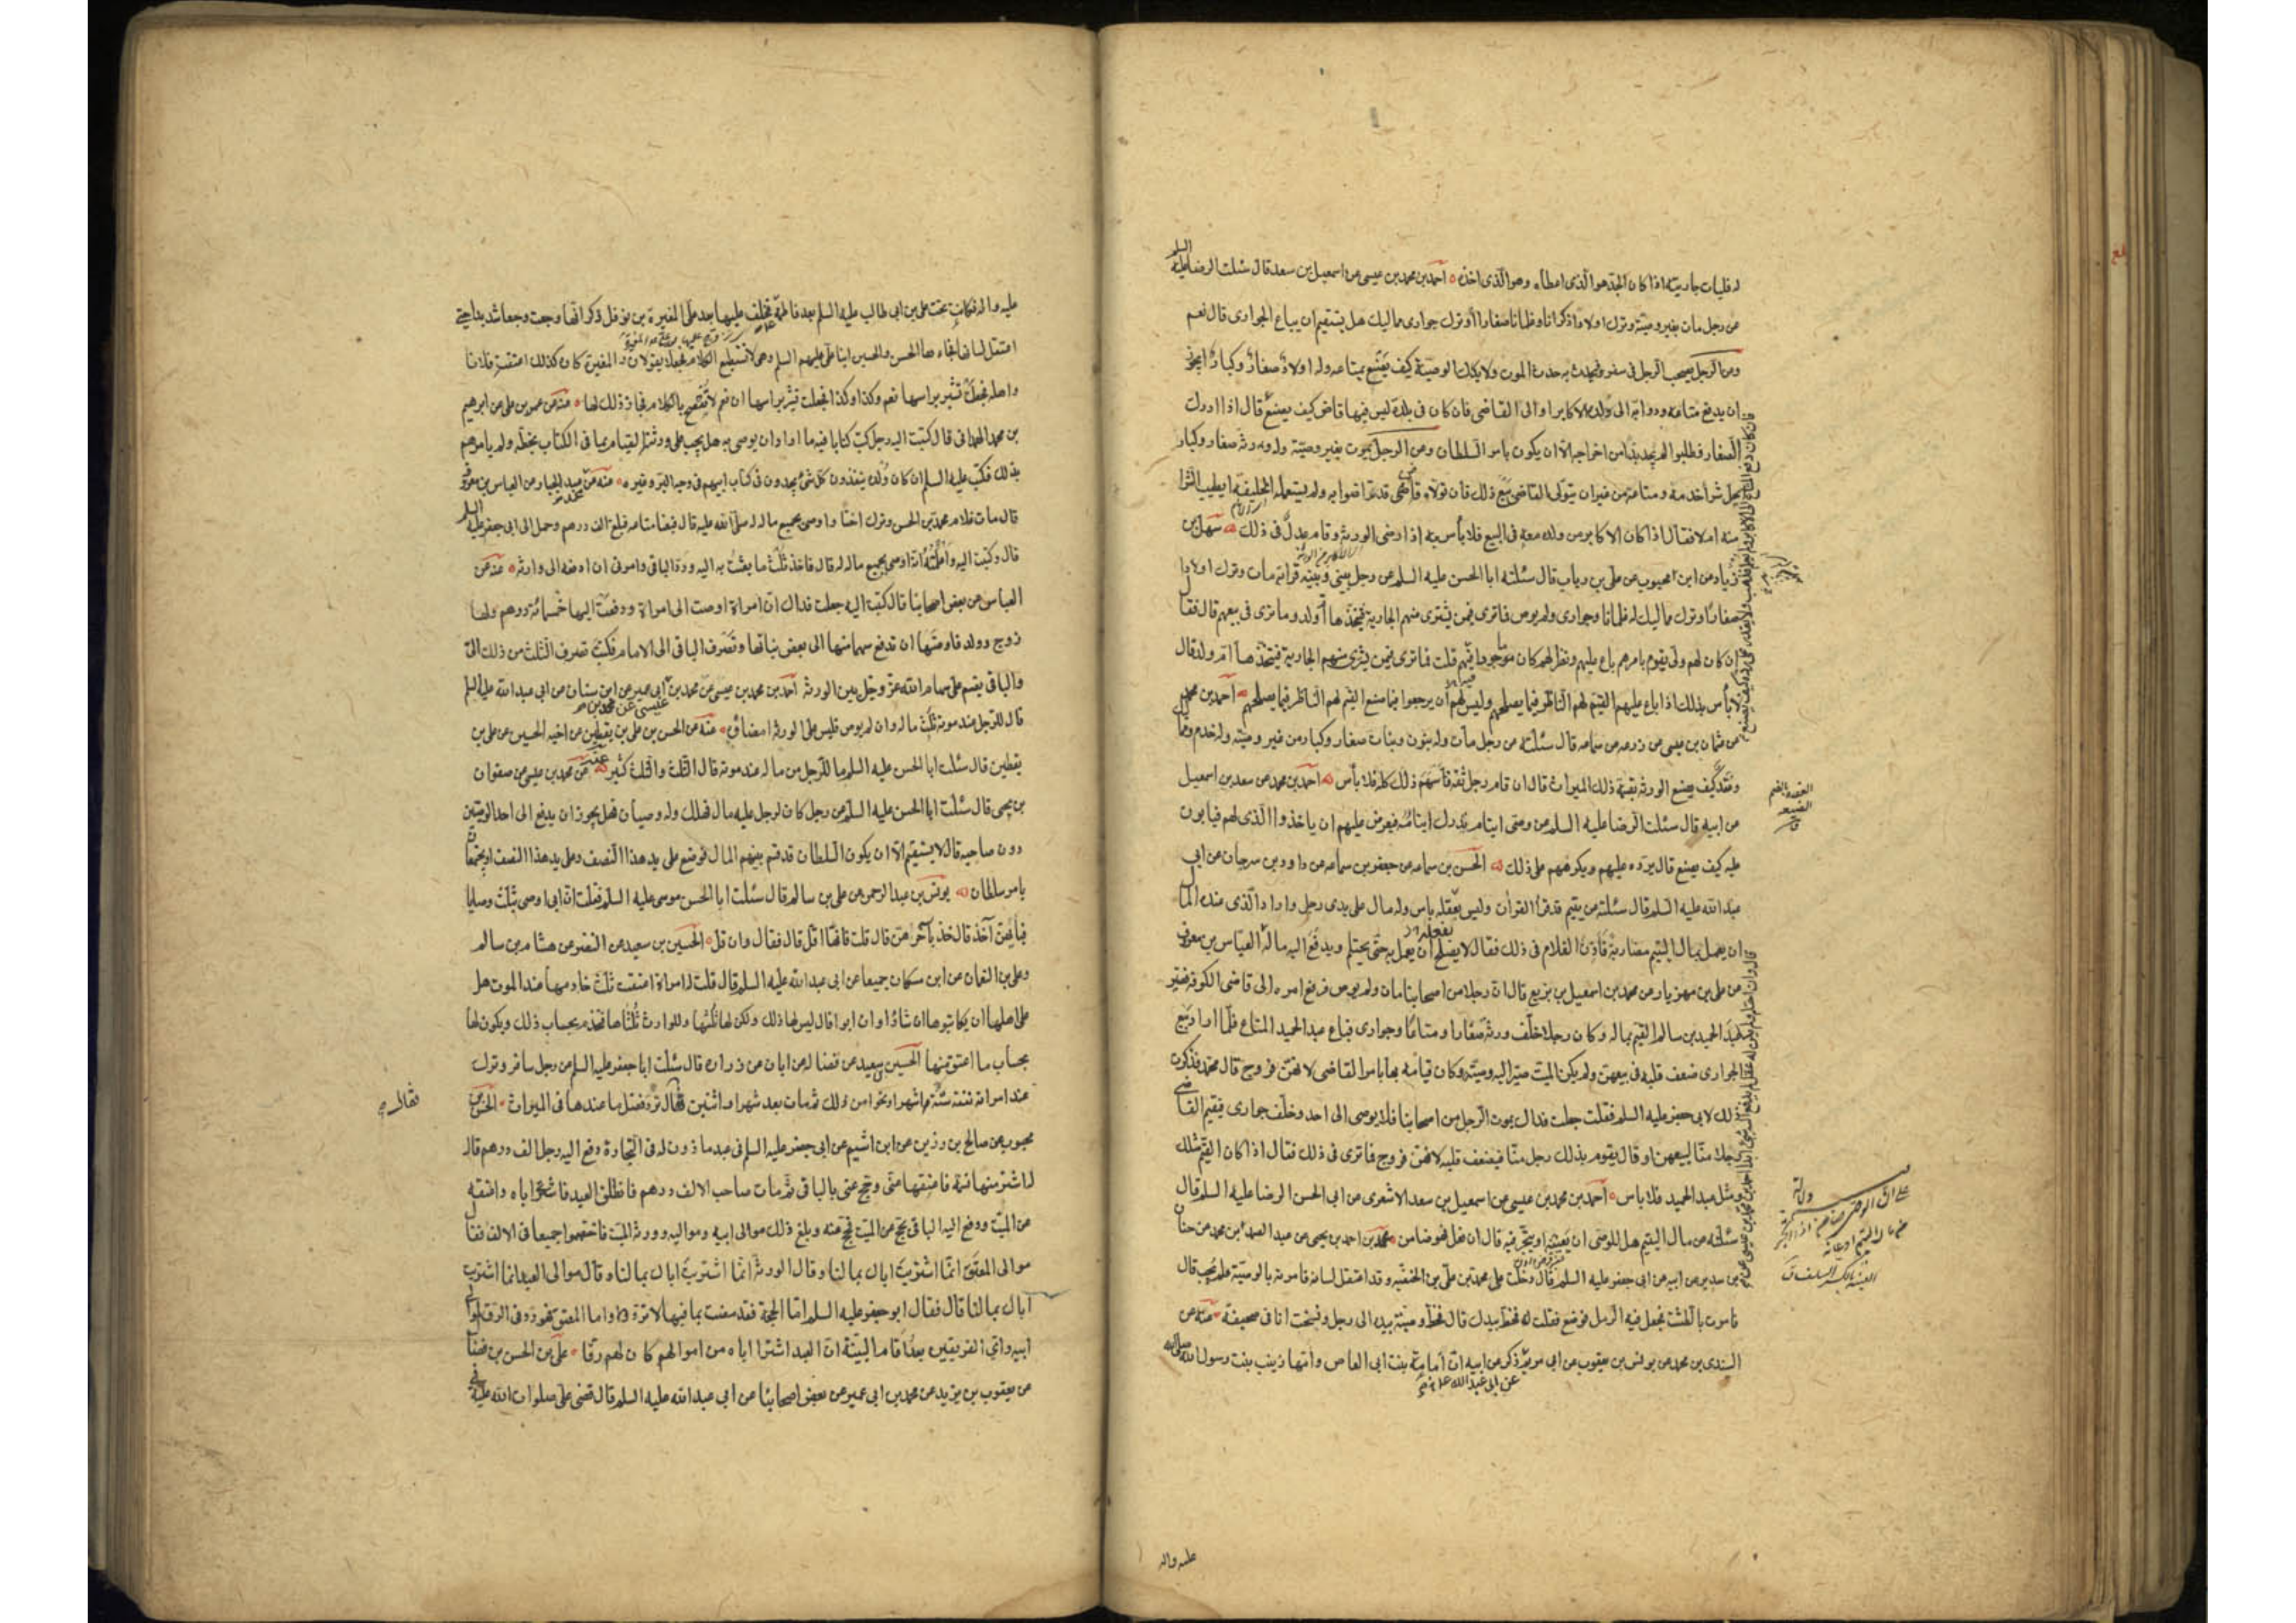 له فليات جاريته اذا كان الجد هو الذى اعطاه وهو الذى اخذه احمد بن محمد بن عيسى عن اسمعيل بن سعد قال سئلت الرضا عليه السلم
عن رجل مات بغير وصية وترك اولادا ذكرانا وغلمانا صغارا وترك جوارى مماليك هل يستقيم ان يباع الجوارى قال نعم
وعن الرجل يصحب الرجل فى سفر فيحدث به حدث الموت ولا يدرك الوصية كيف يصنع بمتاعه وله اولاد صغار وكبار ايجوز
ان يدفع متاعه ودوابه الى ولده الاكابر او الى القاضى فان كان فى بلدة ليس فيها قاض كيف يصنع قال اذا ادرك
الصغار فطلبوا لم يجد بدا من اخراجه الا ان يكون بامر السلطان وعن الرجل يموت بغير وصية وله ورثة صغار وكبار
ايحل شراء خدمه ومتاعه من غير ان يتولى القاضى بيع ذلك فان تولاه قاض قد تراضوا به ولم يستعمله الخليفة ايطيب الشرا
منه ام لا فقال اذا كان الاكابر من ولده معه فى البيع فلا بأس به اذا رضى الورثة وقام عدل فى ذلك سهل بن
زياد عن ابن محبوب عن على بن رياب قال سئلت ابا الحسن عليه السلم عن رجل بينى وبينه قرابة مات وترك اولادا
صغارا وترك مماليك له غلمانا وجوارى ولم يوص فما ترى فيمن يشترى منهم الجارية يتخذها ام ولد وما ترى فى بيعهم قال فقال
ان كان لهم ولى يقوم بامرهم باع عليهم ونظر لهم كان ماجورا فيهم قلت فما ترى فيمن يشترى منهم الجارية فيتخذها ام ولد قال
لا بأس بذلك اذا باع عليهم القيم لهم الناظر فيما يصلحهم وليس لهم ان يرجعوا فيما صنع القيم لهم الناظر فيما يصلحهم احمد بن محمد
عن عثمان بن عيسى عن زرعه عن سماعه قال سئلته عن رجل مات وله بنون وبنات صغار وكبار من غير وصية وله خدم ومماليك
وعقد كيف يصنع الورثة بقسمة ذلك الميراث قال ان قام رجل ثقة قاسمهم ذلك كله فلا بأس احمد بن محمد عن سعد بن اسمعيل
عن ابيه قال سئلت الرضا عليه السلم عن وصى ايتام يدرك ايتامه فيعرض عليهم ان ياخذوا الذى لهم فيابون
عليه كيف يصنع قال يرده عليهم ويكرههم على ذلك الحسن بن سماعه عن جعفر بن سماعه عن داود بن سرحان عن ابى
عبد الله عليه السلم قال سئلته عن يتيم قد قرأ القرأن وليس بعقله باس وله مال على يدى رجل واراد الذى عنده المال
ان يعمل بمال اليتيم مضاربة فأذن الغلام فى ذلك فقال لا يصلح ان يعمل به حتى يحتلم ويدفع اليه ماله العباس بن معروف
عن على بن مهزيار عن محمد بن اسمعيل بن بزيع قال ان رجلا من اصحابنا مات ولم يوص فرفع امره الى قاضى الكوفة فصير
عبد الحميد بن سالم القيم بماله وكان رجلا خلف ورثة صغارا ومتاعا وجوارى فباع عبد الحميد المتاع فلما اراد بيع
الجوارى ضعف قلبه فى بيعهن ولم يكن الميت صير اليه وصيته وكان قيامه بها بامر القاضى لانهن فروج قال محمد فذكرت
ذلك لابى جعفر عليه السلم فقلت جعلت فداك يموت الرجل من اصحابنا فلا يوصى الى احد وخلف جوارى فيقيم القاضى
رجلا منا ليبيعهن او قال يقوم بذلك رجل منا فيضعف قلبه لانهن فروج فما ترى فى ذلك فقال اذا كان القيم مثلك
ومثل عبد الحميد فلا باس احمد بن محمد بن عيسى عن اسمعيل بن سعد الاشعرى عن ابى الحسن الرضا عليه السلم قال
سئلته عن مال اليتيم هل للوصى ان يعينه او يتجر فيه قال ان فعل فهو ضامن محمد بن احمد بن يحيى عن عبد الصمد بن محمد عن حنان
بن سدير عن ابيه عن ابى جعفر عليه السلم قال دخلت على محمد بن على بن الحنفيه وقد اعتقل لسانه فامرته بالوصية فلم يجب قال
فامرت بالطشت فجعل فيه الرمل فوضع فقلت له فخط بيدك قال فخط وصيته بيده الى رجل ونسخت انا فى صحيفة عنه عن
السندى بن محمد عن يونس بن يعقوب عن ابى مريم ذكره عن ابيه ان امامة بنت ابى العاص وامها زينب بنت رسول الله صلى الله
عن ابى عبد الله
العقدة بالضم
الضيعة
ق
عليه واله
عليه واله فكانت تحت على بن ابى طالب عليه السلم بعد فاطمة فخلف عليها بعد على المغيرة بن نوفل ذكر انها وجعت وجعا شديدا حتى
اعتقل لسانها فجاءها الحسن والحسين ابنا على عليهم السلم وهى لا تستطيع الكلام فجعلا يقولان والمغيرة كاره لذلك اعتقت فلانا
واهله فجعلت تشير براسها نعم وكذا وكذا فجعلت تشير براسها ان نعم لا تفصح بالكلام فجاز ذلك لها عنه عن عمر بن على عن ابرهيم
بن محمد الهمدانى قال كتبت اليه رجل كتب كتابا فيه ما اراد ان يوصى به هل يجب على ورثته القيام بما فى الكتاب بخطه ولم يامرهم
بذلك فكتب عليه السلم ان كان ولده ينفذون كل شئ يجدون فى كتاب ابيهم فى وجه البر وغيره عنه عن عبد الجبار عن العباس بن معروف
قال مات غلام محمد بن الحسن وترك اختا واوصى بجميع ماله له عليه السلم قال فبعنا متاعه فبلغ الف درهم وحمل الى ابى جعفر عليه السلم
قال وكتبت اليه واعلمته انه اوصى بجميع ماله له قال فاخذ ثلث ما بعثت به اليه ورد الباقى وامرنى ان ادفعه الى وارثه عنه عن
العباس عن بعض اصحابنا قال كتبت اليه جعلت فداك ان امراة اوصت الى امراة ودفعت اليها خمسمائة درهم ولها
زوج وولد فاوصتها ان تدفع سهما منها الى بعض بناتها وتصرف الباقى الى الامام فكتب تصرف الثلث من ذلك الى
والباقى يقسم على سهام الله عز وجل بين الورثة احمد بن محمد بن عيسى عن محمد بن ابى عمير عن ابن سنان عن ابى عبد الله عليه السلم
قال للرجل عند موته ثلث ماله وان لم يوص فليس على الورثة امضاؤه عنه عن الحسن بن على بن يقطين عن اخيه الحسين عن على بن
يقطين قال سئلت ابا الحسن عليه السلم ما للرجل من ماله عند موته قال الثلث والثلث كثير عنه عن محمد بن عيسى عن صفوان
بن يحيى قال سئلت ابا الحسن عليه السلم عن رجل كان لرجل عليه مال فهلك وله وصيان فهل يجوز ان يدفع الى احد الوصيين
دون صاحبه قال لا يستقيم الا ان يكون السلطان قد قسم بينهم المال فوضع على يد هذا النصف وعلى يد هذا النصف او يجتمعان
بامر سلطان يونس بن عبد الرحمن عن على بن سالم قال سئلت ابا الحسن موسى عليه السلم فقلت ان ابى اوصى بثلث وصايا
فبأيهن آخذ قال خذ بآخرهن قال قلت فانها اقل قال فقال وان قل الحسين بن سعيد عن النضر عن هشام بن سالم
وعلى بن النعمان عن ابن مسكان جميعا عن ابى عبد الله عليه السلم قال قلت له امراة اعتقت ثلث خادمها عند الموت هل
على اهلها ان يكاتبوها ان شاؤا وان ابوا قال ليس لها ذلك ولكن لها ثلثها وللوارث ثلثاها فتخدم بحساب ذلك ويكون لها
بحساب ما اعتق منها الحسين بن سعيد عن فضاله عن ابان عن زراره قال سئلت ابا جعفر عليه السلم عن رجل سافر وترك
عند امراته نفقة ستة اشهر او نحوا من ذلك ثم مات بعد شهر او اثنين قال ترد فضل ما عندها فى الميراث الحسن بن
محبوب عن صالح بن رزين عن ابن اشيم عن ابى جعفر عليه السلم فى عبد ماذون له فى التجارة دفع اليه رجل الف درهم قال
له اشتر منها نسمة فاعتقها عنى وحج عنى بالباقى ثم مات صاحب الالف درهم فانطلق العبد فاشترى اباه واعتقه
عن الميت ودفع اليه الباقى يحج عن الميت فحج عنه وبلغ ذلك موالى ابيه ومواليه وورثة الميت فاختصموا جميعا فى الالف فقال
موالى المعتق انما اشتريت اباك بمالنا وقال الورثة انما اشتريت اباك بمالنا وقال موالى العبد انما اشتريت
اباك بمالنا قال فقال ابو جعفر عليه السلم اما الحجة فقد مضت بما فيها لا ترد واما المعتق فهو رد فى الرق لموالى
ابيه واى الفريقين بعد اقام البينة ان العبد اشترى اباه من اموالهم كان لهم رقا على بن الحسن بن فضال
عن يعقوب بن يزيد عن محمد بن ابى عمير عن بعض اصحابنا عن ابى عبد الله عليه السلم قال قضى على صلوات الله عليه فى
فقال